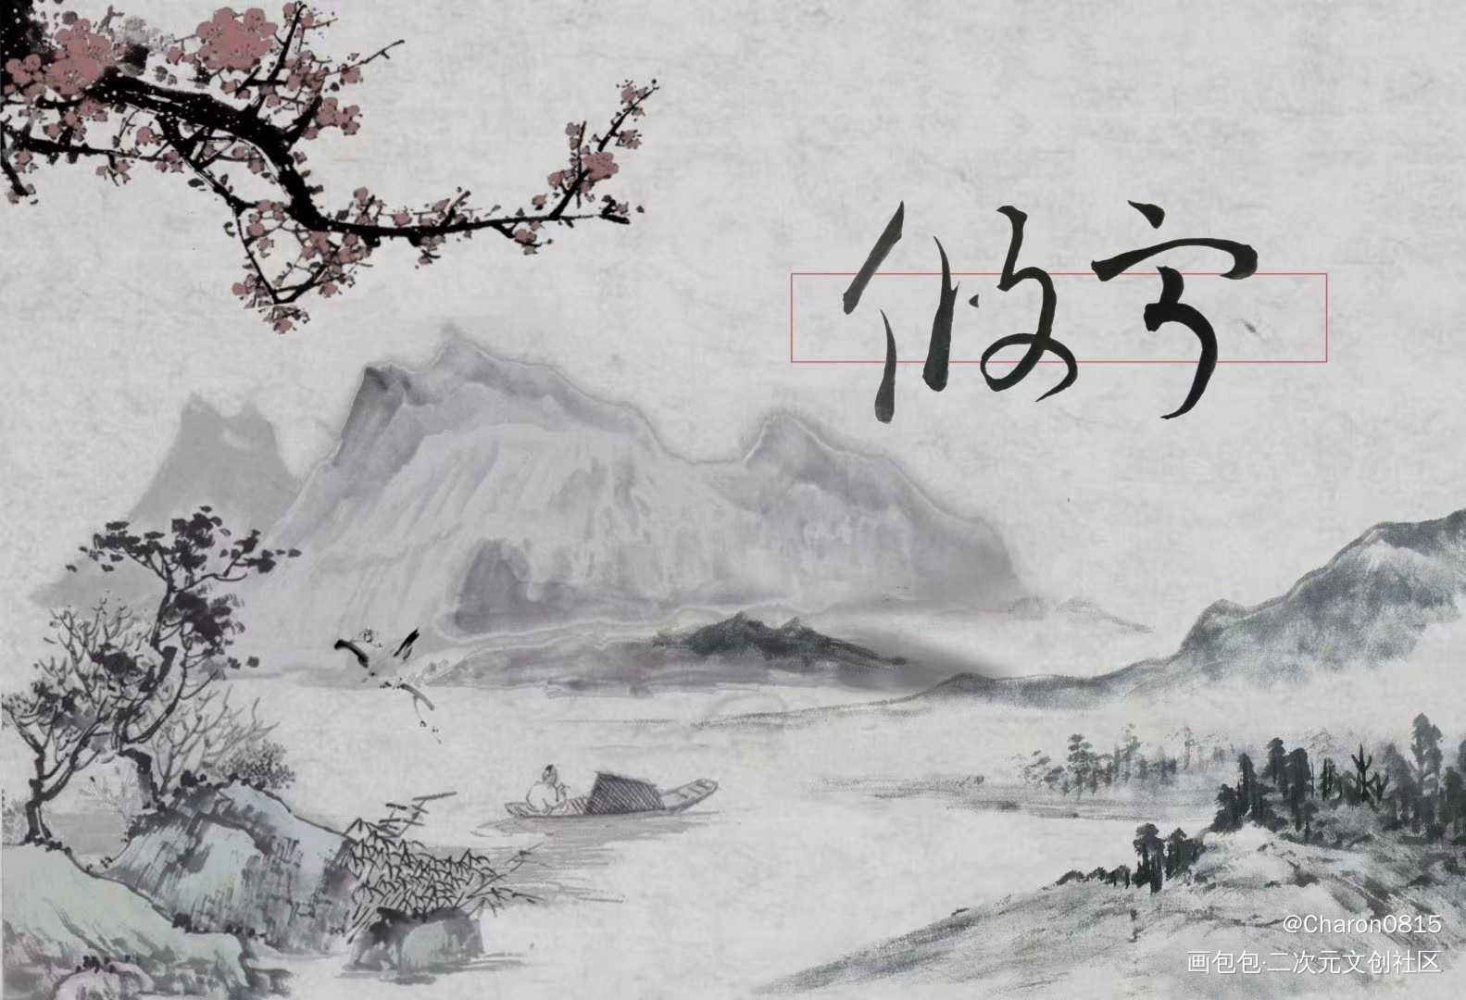 攸宁
@Charon0815
画包包·二次元文创社区